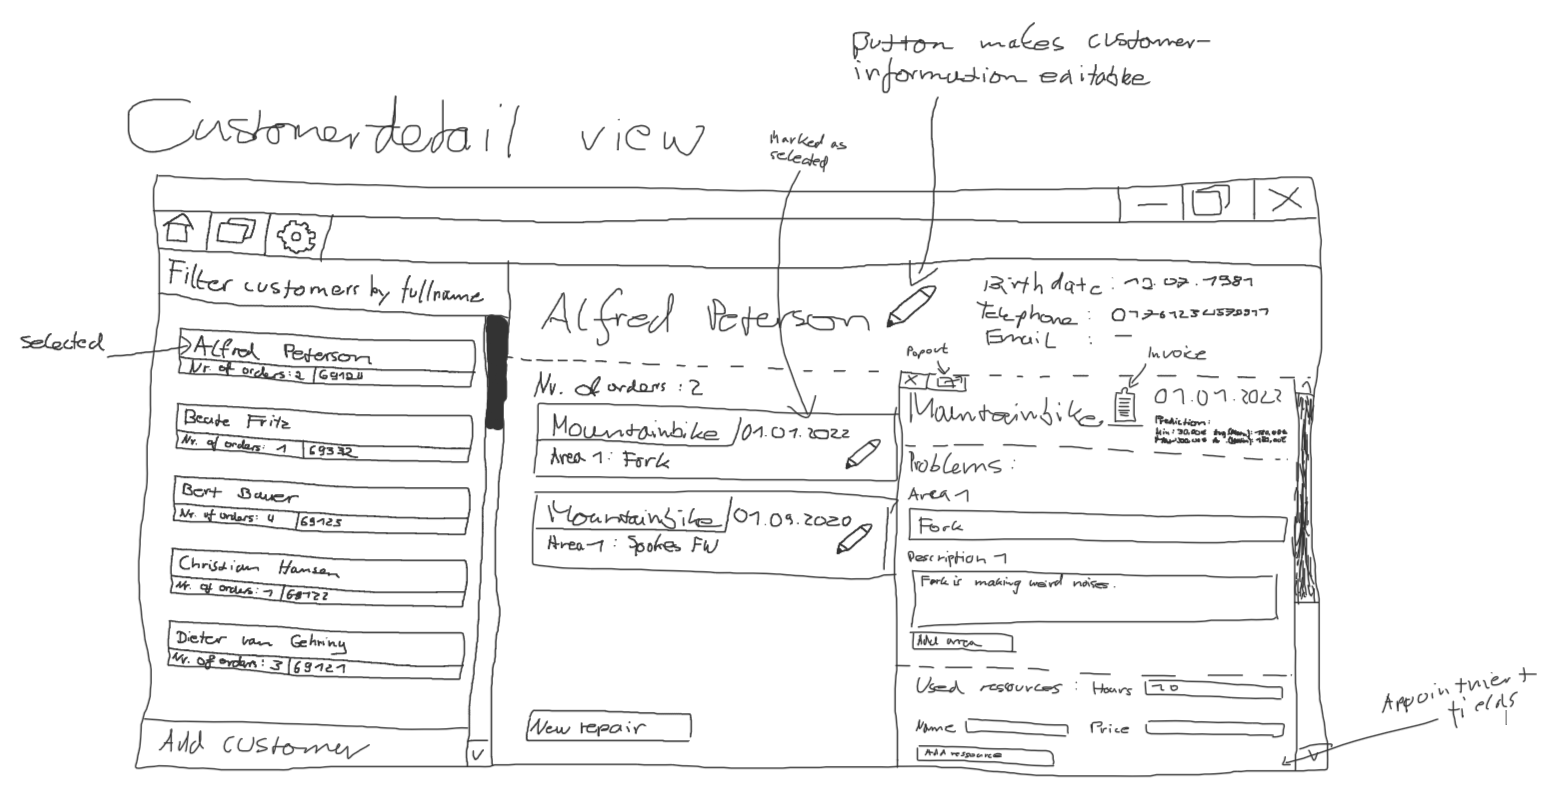 Button makes customer-
information editable
Customerdetail view
Marked as
selected
Filter customers by fullname
selected
Alfred Peterson
Nr. of orders: 2 69124
Beate Fritz
Nr. of orders: 1 69332
Bert Bauer
Nr. of orders: 4 69123
Christian Hansen
Nr. of orders: 1 69122
Dieter van Gehring
Nr. of orders: 3 69121
Add customer
Alfred Peterson
Birthdate:
Telephone:
Email: —
Nr. of orders: 2
Mountainbike 01.01.2022
Area 1: Fork
Mountainbike 01.09.2020
Area 1: Spokes FW
New repair
Popout
Invoice
Mountainbike
01.01.2022
Prediction:
Problems:
Area 1
Fork
Description 1
Fork is making weird noises.
Add area
Used resources: Hours
Name Price
Add ressource
Appointment
fields